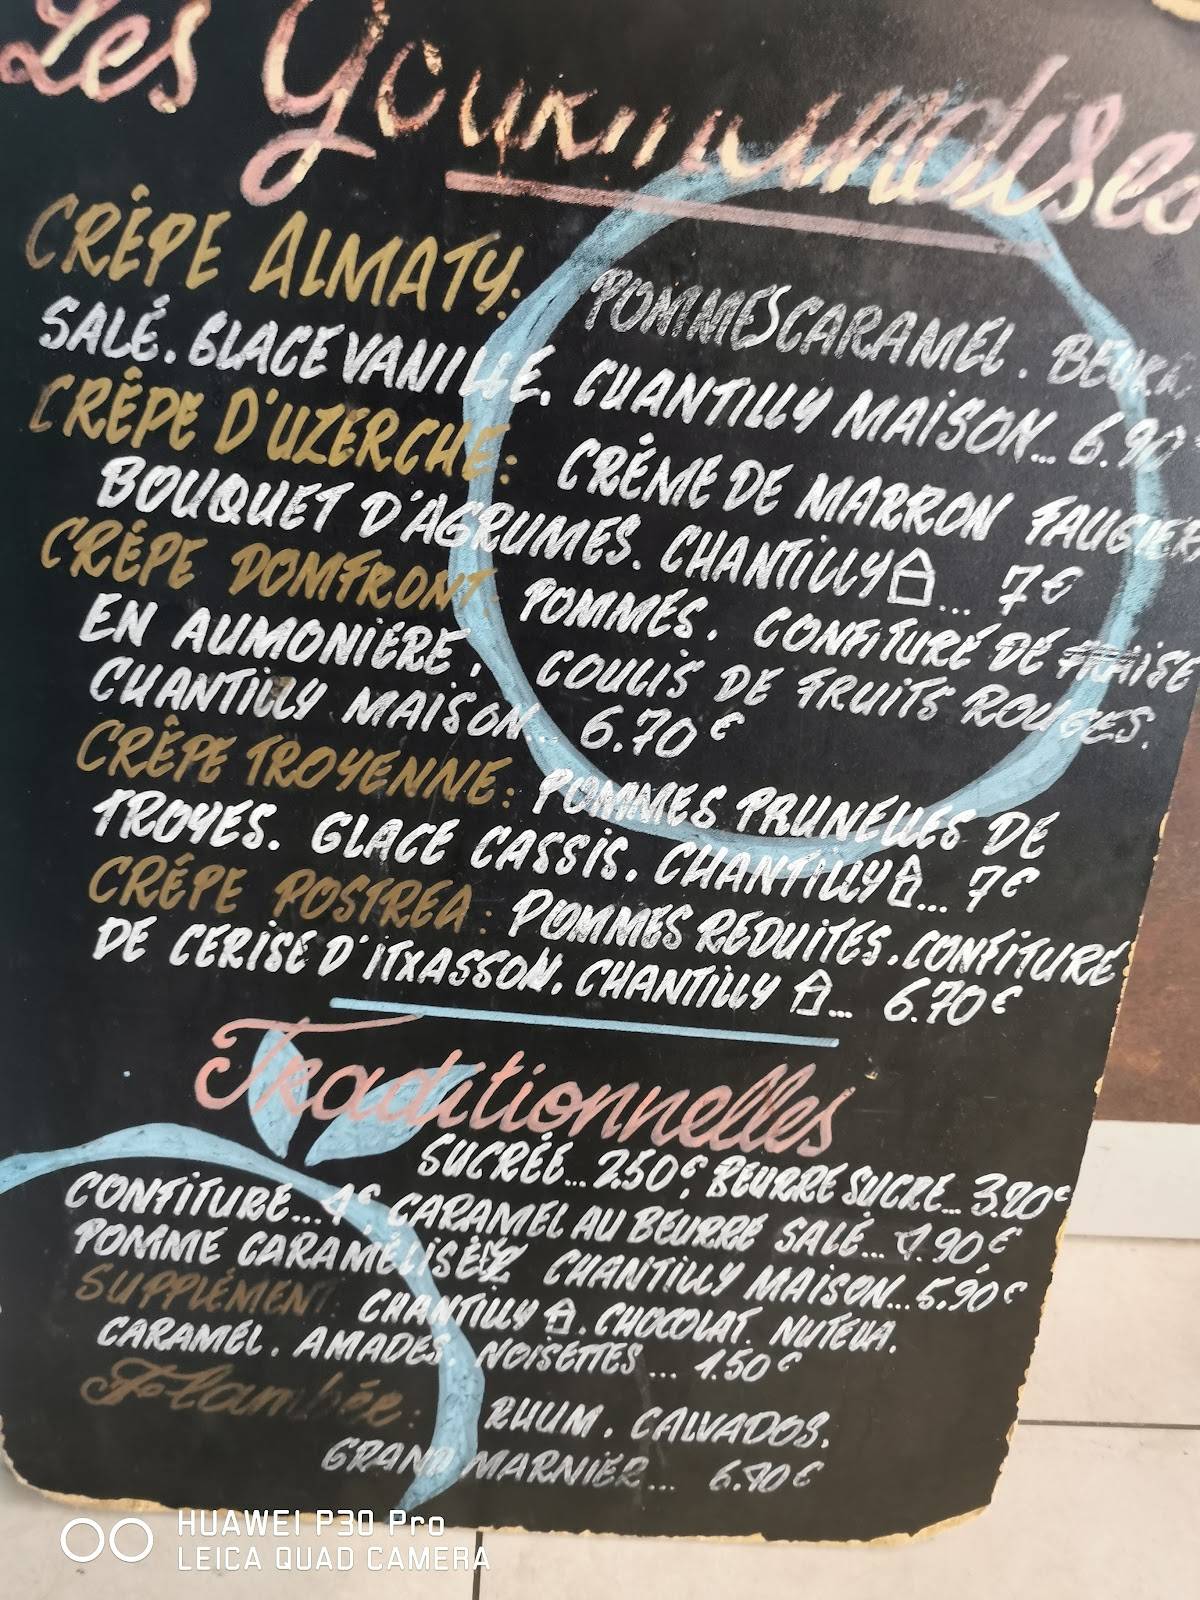 Les Gourmandises
CRÊPE ALMATY: POMMES CARAMEL. BEURRE
SALÉ. GLACE VANILLE. CHANTILLY MAISON... 6.90
CRÊPE D'UZERCHE: CRÈME DE MARRON FAUGIER
BOUQUET D'AGRUMES. CHANTILLY... 7€
CRÊPE DOMFRONT: POMMES. CONFITURE DE FRAISE
EN AUMONIÈRE, COULIS DE FRUITS ROUGES.
CHANTILLY MAISON... 6.70€
CRÊPE TROYENNE: POMMES PRUNELLES DE
TROYES. GLACE CASSIS. CHANTILLY... 7€
CRÉPE POSTREA: POMMES REDUITES. CONFITURE
DE CERISE D'ITXASSON. CHANTILLY... 6.70€
Traditionnelles
SUCRÉE... 2.50€, BEURRE SUCRE... 3.20€
CONFITURE... 4€, CARAMEL AU BEURRE SALÉ... 4.90€
POMME CARAMÉLISÉE CHANTILLY MAISON... 5.90€
SUPPLÉMENT: CHANTILLY. CHOCOLAT. NUTELLA.
CARAMEL. AMADES. NOISETTES... 1.50€
Flambée: RHUM. CALVADOS.
GRAND MARNIER... 6.70€
HUAWEI P30 Pro
LEICA QUAD CAMERA